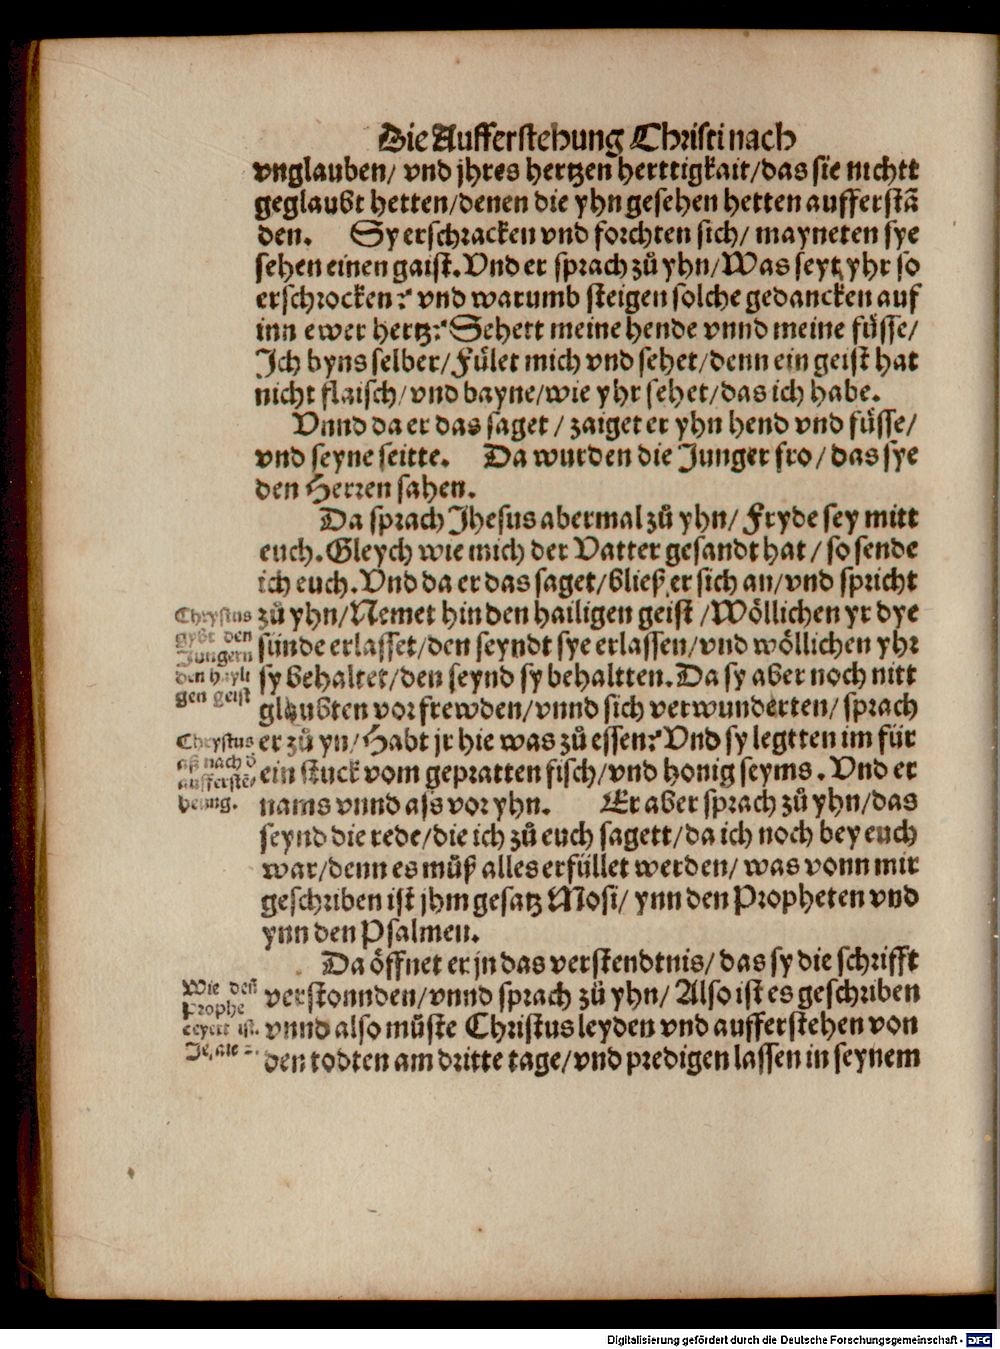 Die Aufferstehung Christi nach
vnglauben/ vnd jhres hertzen herttigkait/das sie nichtt
geglaubt hetten/denen die yhn gesehen hetten aufferstā
den. Sy erschracken vnd forchten sich/ mayneten sye
sehen einen gaist. Vnd er sprach zů yhn/Was seyt yhr so
erschrocken? vnd warumb steigen solche gedancken auf
inn ewer hertz? Sehett meine hende vnnd meine füsse/
Ich byns selber/Fület mich vnd sehet/denn ein geist hat
nicht flaisch/vnd bayne/wie yhr sehet/das ich habe.
Vnnd da er das saget/ zaiget er yhn hend vnd füsse/
vnd seyne seitte. Da wurden die Junger fro/das sye
den Herren sahen.
Da sprach Jhesus abermal zů yhn/ Fryde sey mitt
euch. Gleych wie mich der Vatter gesandt hat/ so sende
ich euch. Vnd da er das saget/bließ er sich an/vnd spricht
zů yhn/Nemet hin den hailigen geist/Wöllichen yr dye
sünde erlasset/den seyndt sye erlassen/vnd wöllichen yhr
sy behaltet/den seynd sy behaltten. Da sy aber noch nitt
glaubten vor frewden/vnnd sich verwunderten/ sprach
er zů yn/Habt jr hie was zů essen? Vnd sy legtten im für
ein stuck vom gepratten fisch/vnd honig seyms. Vnd er
nams vnnd ass vor yhn. Er aber sprach zů yhn/das
seynd die rede/die ich zů euch sagett/da ich noch bey euch
war/denn es můß alles erfüllet werden/ was vonn mir
geschriben ist jhm gesatz Mosi/ ynn den Propheten vnd
ynn den Psalmen.
Da öffnet er jn das verstendtnis/das sy die schrifft
verstonnden/vnnd sprach zů yhn/ Also ist es geschriben
vnnd also můste Christus leyden vnd aufferstehen von
den todten am dritte tage/vnd predigen lassen in seynem
Chrystus
gybt den
Jungern
den hayli
gen geist
Chrystus
aß nach d
aufferstē/
hung.
Wie deñ
Prophe
ceyett ist.
Digitalisierung gefördert durch die Deutsche Forschungsgemeinschaft - DFG